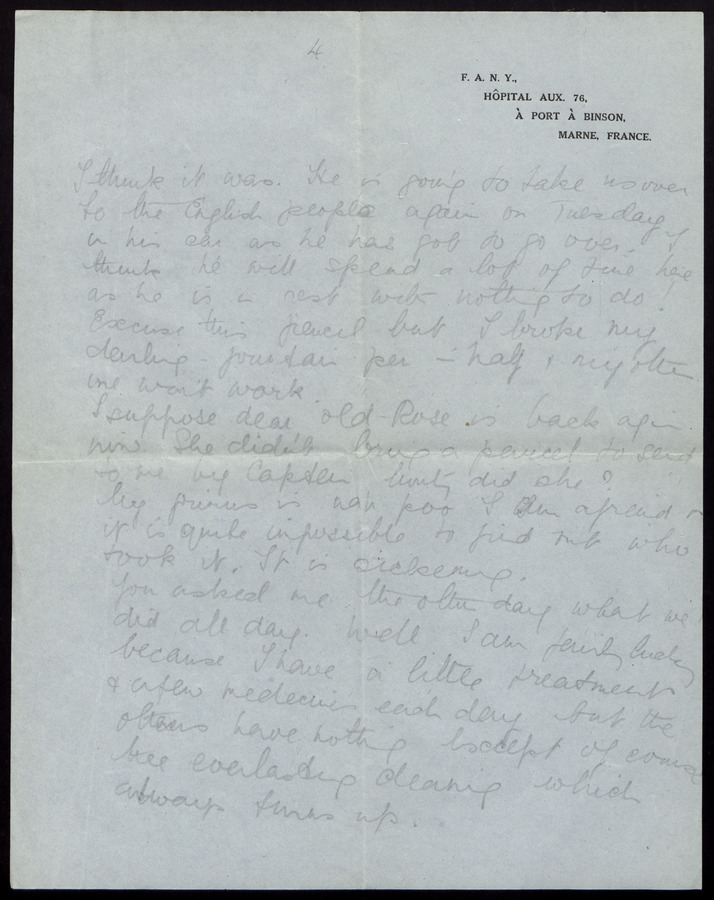 4
F. A. N. Y.,
HÔPITAL AUX. 76,
À PORT À BINSON,
MARNE, FRANCE.
I think it was. He is going to take us over
to the English people again on Tuesday
in his car as he has got to go over. I
think he will spend a lot of time here
as he is in rest with nothing to do!
Excuse this pencil but I broke my
darling fountain pen in half & my other
one won't work
I suppose dear old Rose is back again
now. She didn't bring a parcel to send
to me by Capten did she?
My is nah poo I am afraid
it is quite impossible to find out who
took it. It is sickening.
You asked me the other day what we
did all day. Well I am fairly lucky
because I have a little treatment
& a few medecines each day but the
others have nothing except of course
the everlasting cleaning which
always turns up.